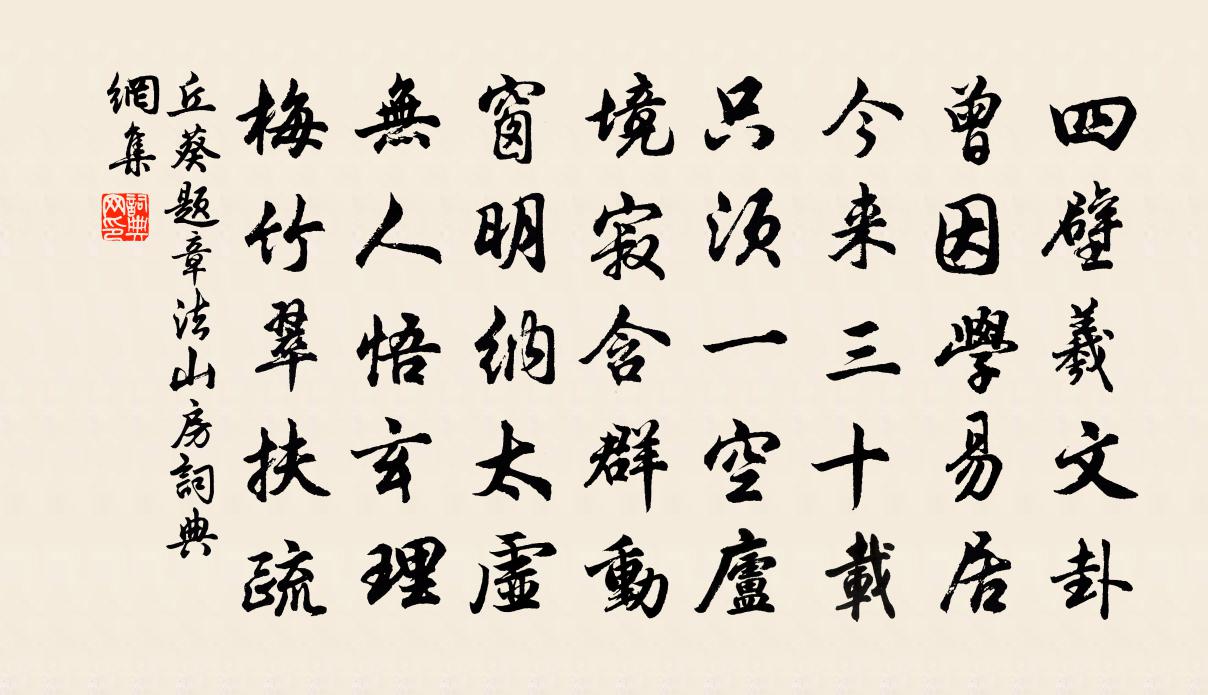 四壁羲文卦
曾因學易居
今来三十載
只須一空廬
境寂含群動
窗明納太虛
無人悟玄理
梅竹翠扶疏
丘葵題章法山房詞典
網集
詞典
网印